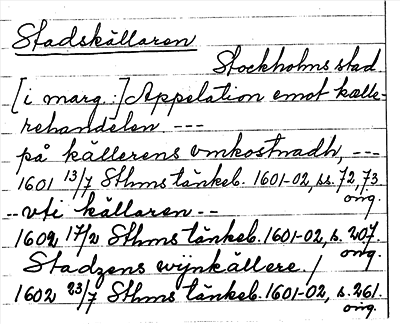 Stadskällaren
Stockholms stad
[i marg.:] Appelation emot källe-
rehandelen ---
på källerens vmkostnadh, ---
1601 13/7 Sthms tänkeb. 1601-02, ss. 72, 73.
orig.
-- vti källaren --
1602 17/2 Sthms tänkeb. 1601-02, s. 207.
orig.
Stadzens wijnkällere /
1602 23/7 Sthms tänkeb. 1601-02, s. 261.
orig.